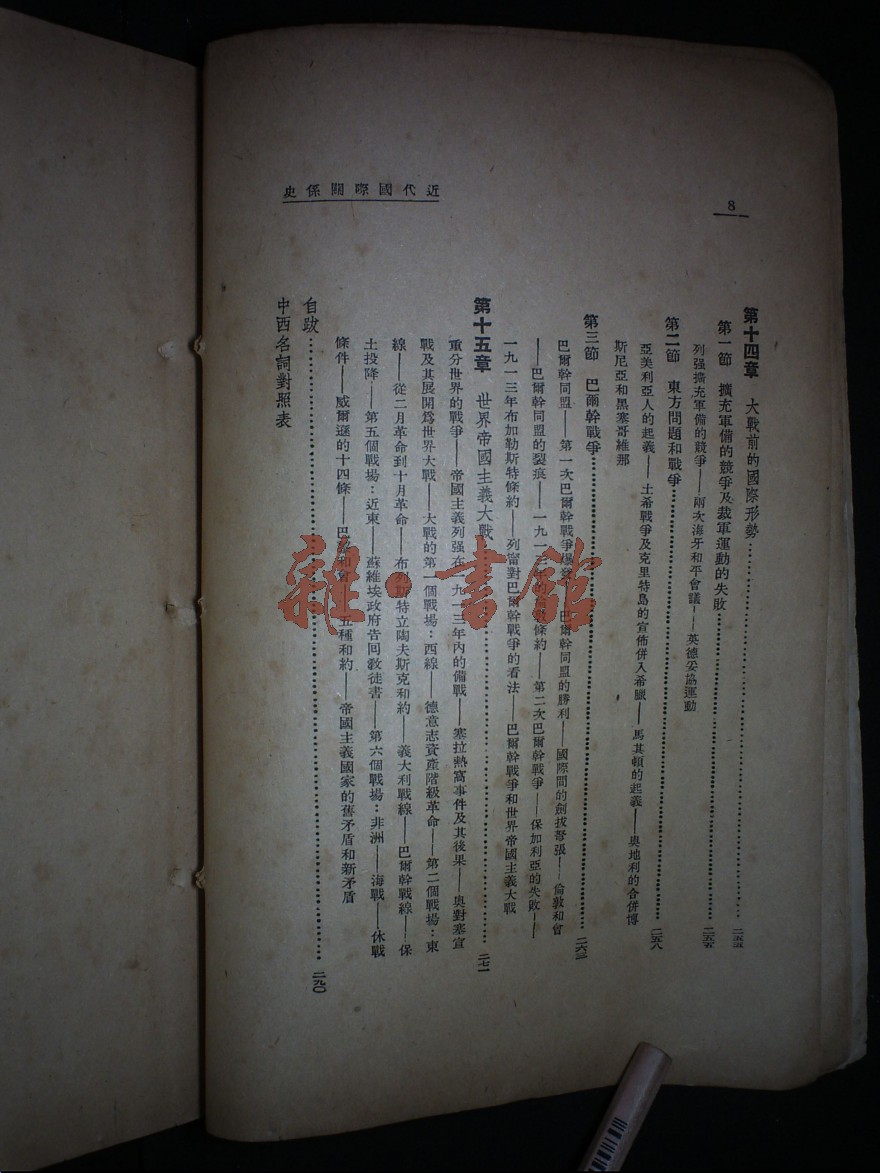 近代國際關係史
8
第十四章 大戰前的國際形勢……二五五
第一節 擴充軍備的競爭及裁軍運動的失敗……二五五
列强擴充軍備的競爭——兩次海牙和平會議——英德妥協運動
第二節 東方問題和戰爭……二五八
亞美利亞人的起義——土希戰爭及克里特島的宣佈併入希臘——馬其頓的起義——奥地利的合併博
斯尼亞和黑塞哥維那
第三節 巴爾幹戰爭……二六三
巴爾幹同盟——第一次巴爾幹戰爭爆發——巴爾幹同盟的勝利——國際間的劍拔弩張——倫敦和會
——巴爾幹同盟的裂痕——一九一三年的倫敦條約——第二次巴爾幹戰爭——保加利亞的失敗——
一九一三年布加勒斯特條約——列甯對巴爾幹戰爭的看法——巴爾幹戰爭和世界帝國主義大戰
第十五章 世界帝國主義大戰……二七一
重分世界的戰爭——帝國主義列强在一九一三年内的備戰——塞拉熱窩事件及其後果——奥對塞宣
戰及其展開爲世界大戰——大戰的第一個戰場：西線——德意志資產階級革命——第二個戰場：東
線——從二月革命到十月革命——布列斯特立陶夫斯克和約——義大利戰線——巴爾幹戰線——保
土投降——第五個戰場：近東——蘇維埃政府告回教徒書——第六個戰場：非洲——海戰——休戰
條件——威爾遜的十四條——巴黎和會——五種和約——帝國主義國家的舊矛盾和新矛盾
自跋……二九〇
中西名詞對照表
雜·書館